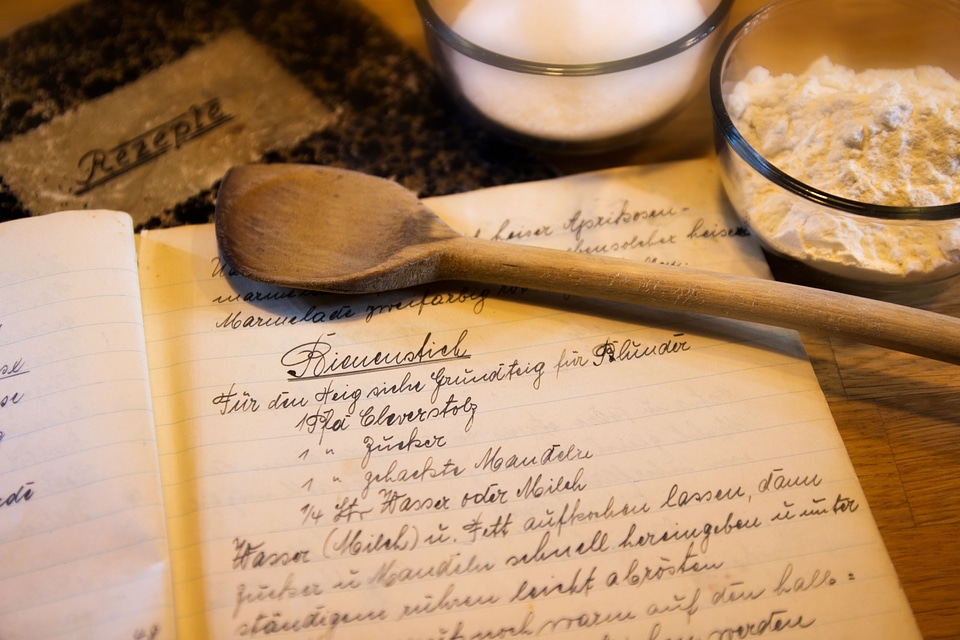 Rezepte
heiser Aprikosen-
ebensolcher heisen
Marmelade zweifarbig
Bienenstich
Für den Teig siehe Grundteig für Plunder
1 Pfd Cleverstolz
1 " Zucker
1 " gehackte Mandeln
1/4 Ltr Wasser oder Milch
Wasser (Milch) u. Fett aufkochen lassen, dann
Zucker u Mandeln schnell hereingeben u unter
ständigem rühren leicht abrösten
noch warm auf den halb=
werden